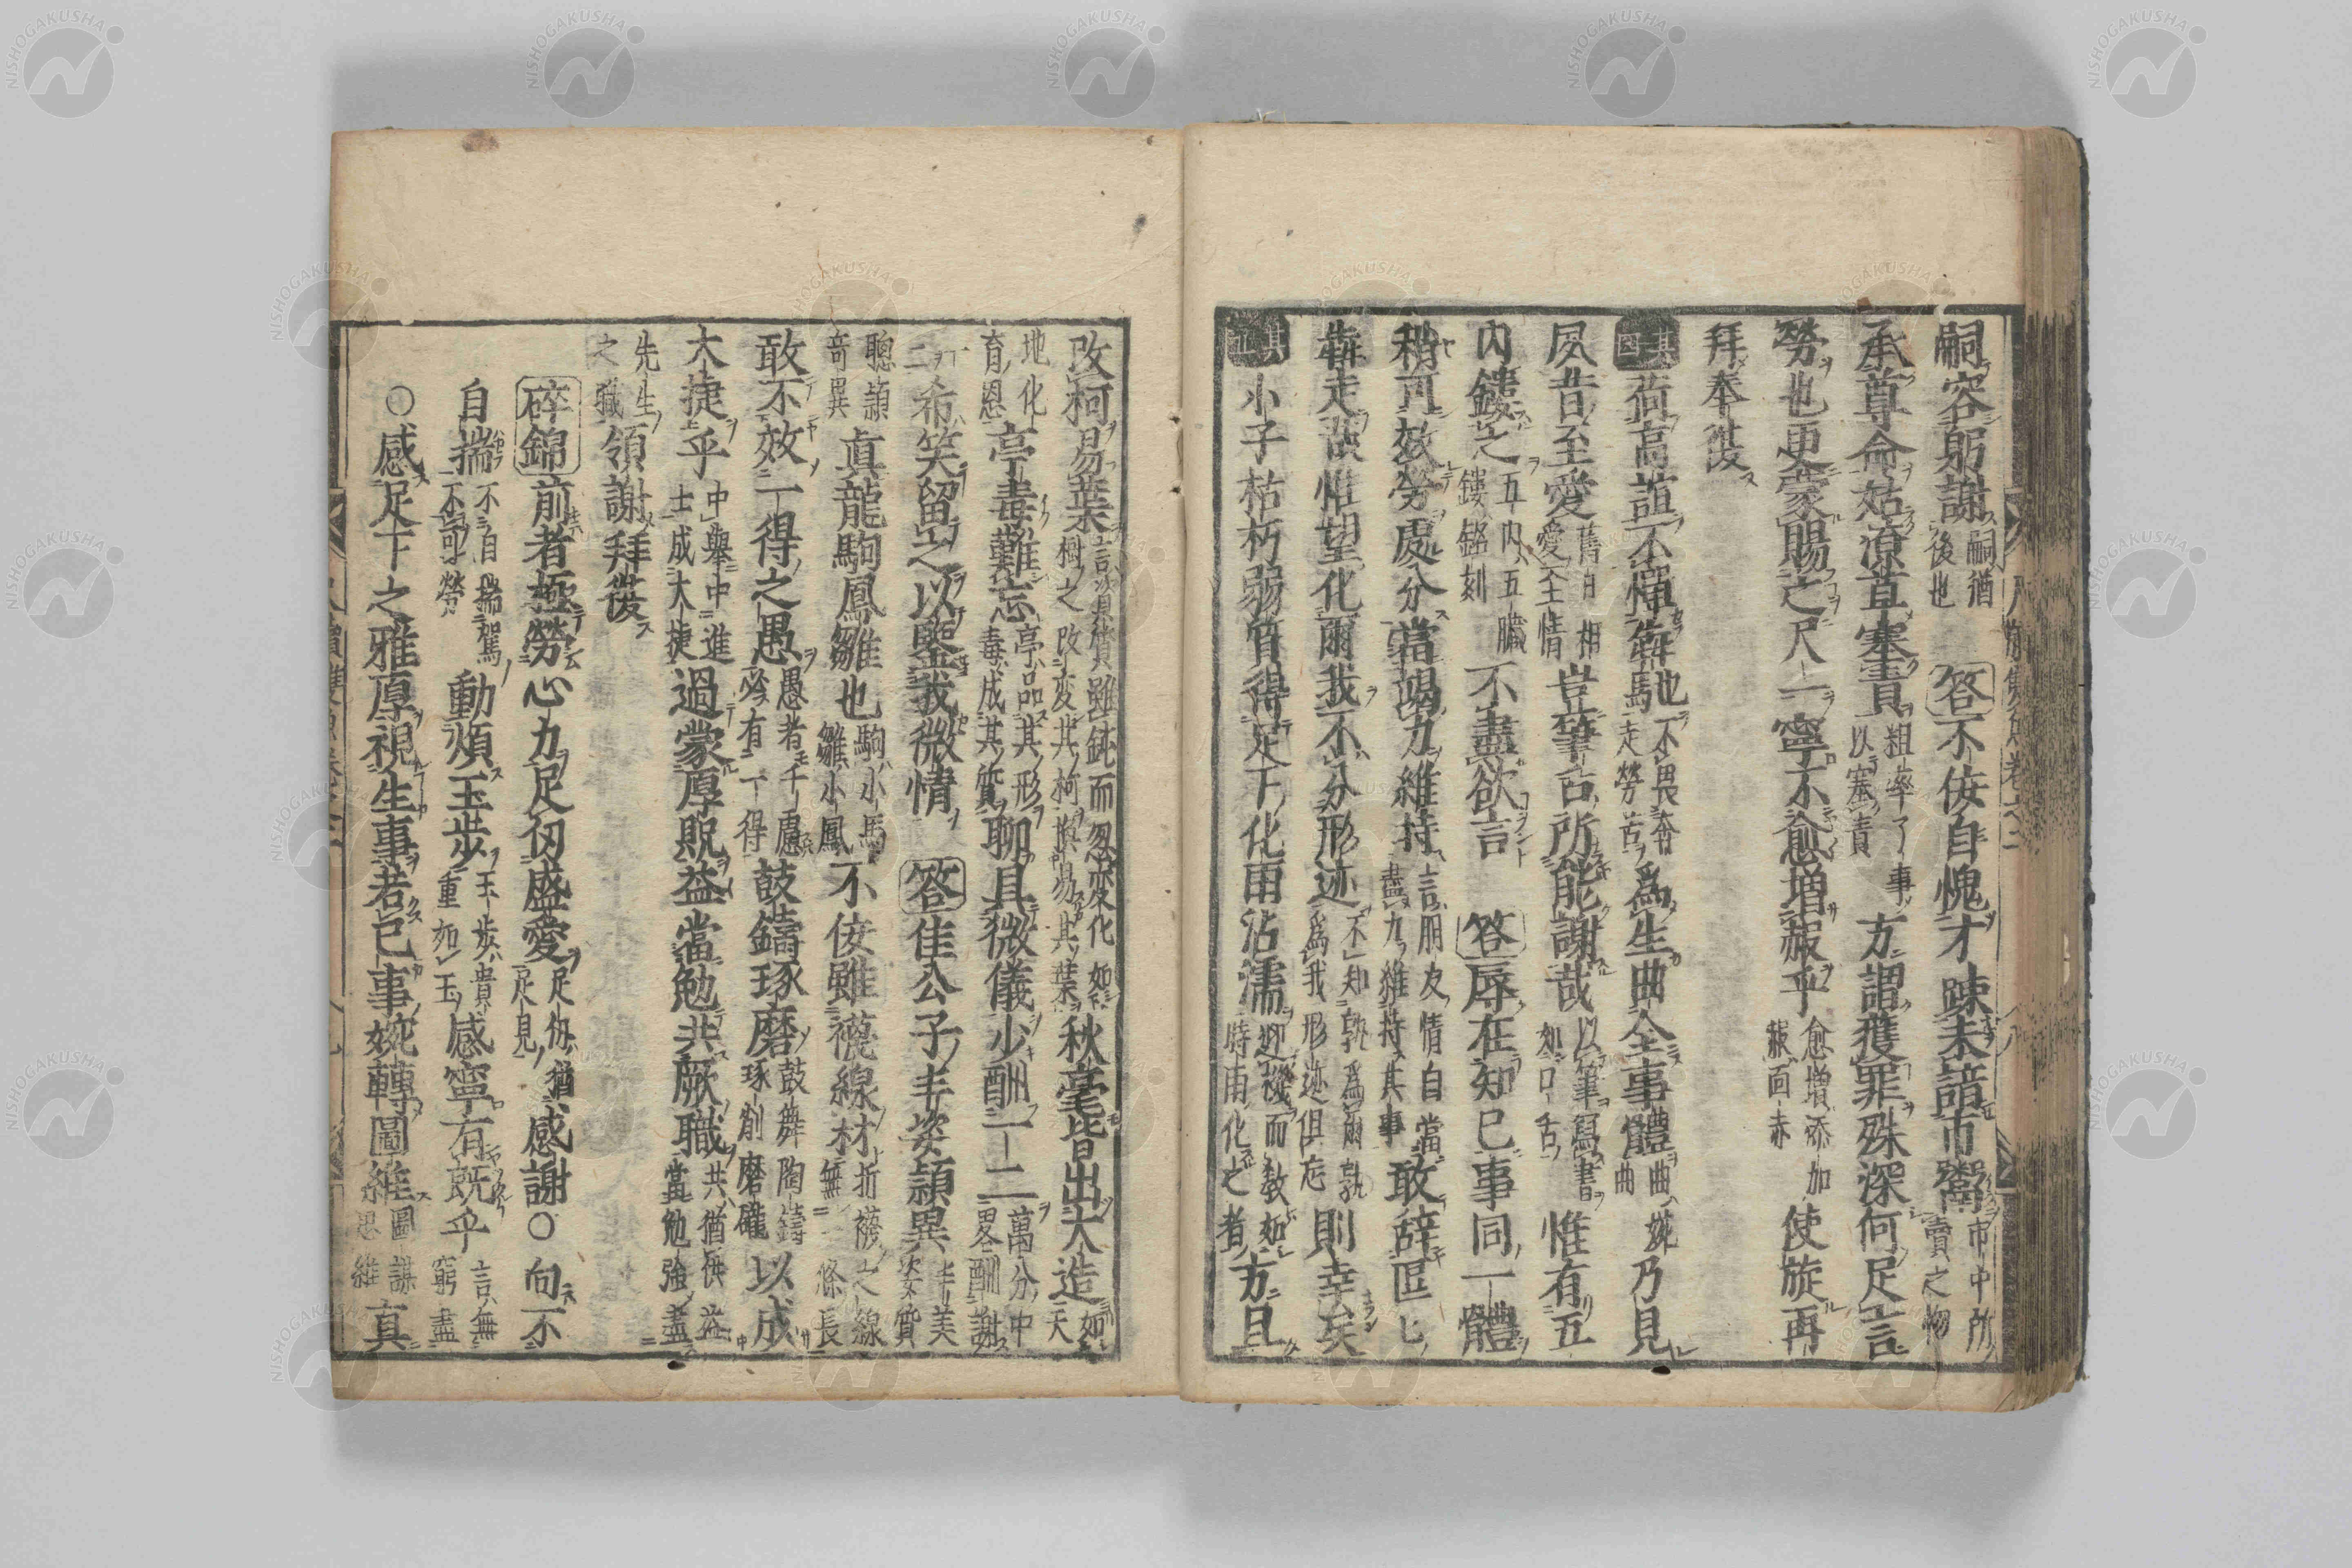 嗣容躬謝嗣猶後也 答不侫自愧才踈未諳市鬻市中所賣之物
承尊命姑潦草塞責粗率了事以塞責方謂獲罪殊深何足言
勞也更蒙賜之尺一寧不愈増赧乎愈増添加赧面赤使旋再
拜奉復
其四 荷高誼不憚犇也不畏奔馬走勞苦爲生曲全事體曲娓曲乃見
夙昔至愛舊日相愛至情豈筆舌所能謝哉以筆寫書如口舌惟有五
内鏤之五内五臓鏤銘刻不盡欲言 答辱在知已事同一體
稍可效勞處分當竭力維持言朋友情自當盡力維持其事敢辞匠匕
犇走哉惟望化爾我不分形迹不知孰爲爾孰爲我形迹倶忘則幸矣
其五 小子枯朽弱質得足下化雨沾濡迎機而教如時雨化之者方且
改柯易葉言資質雖鈍而忽變化如樹之改変其柯換易其葉秋毫皆出大造如天
地化育恩亭毒難忘亭品其形毒成其質聊具微儀少酬一二萬分中畧酬謝
一二希笑留之以鑒我微情 答佳公子丰姿頴異丰美姿質
聰頴竒異眞龍駒鳳雛也駒小馬雛小鳳不侫雖襪線材折襪之線無一條長
敢不效一得之愚愚者千慮必有一得鼓鑄琢磨鼓舞陶鑄琢削磨礲以成
大捷乎中擧中進士成大捷過蒙厚貺益當勉共厥職共猶供益當勉強盡
先生之職領謝拜復
碎錦 前者極勞心力足仭盛愛足仭猶足見感謝〇向不
自揣不自揣不可勞駕動煩玉歩玉歩貴重如玉感寧有既乎言無窮盡
〇感足下之雅厚視生事若已事婉轉圖維圖謀思維真